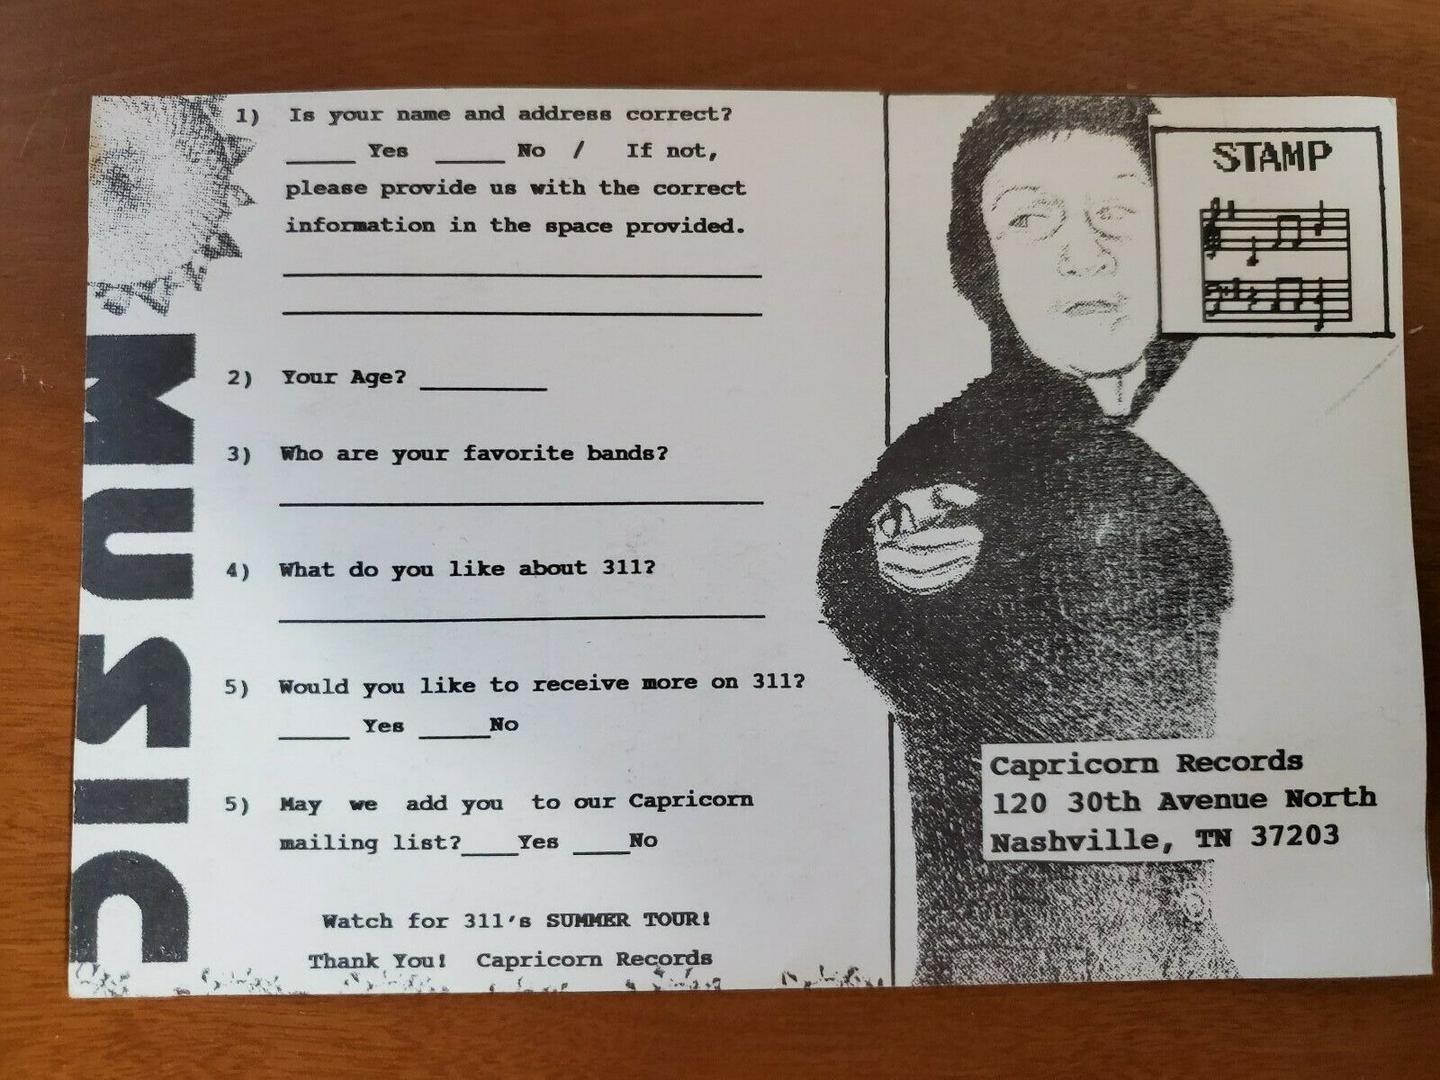 MUSIC
1) Is your name and address correct?
____ Yes ____ No / If not,
please provide us with the correct
information in the space provided.
2) Your Age? ________
3) Who are your favorite bands?
4) What do you like about 311?
5) Would you like to receive more on 311?
____ Yes ____No
5) May we add you to our Capricorn
mailing list?____Yes ____No
Watch for 311's SUMMER TOUR!
Thank You! Capricorn Records
STAMP
Capricorn Records
120 30th Avenue North
Nashville, TN 37203